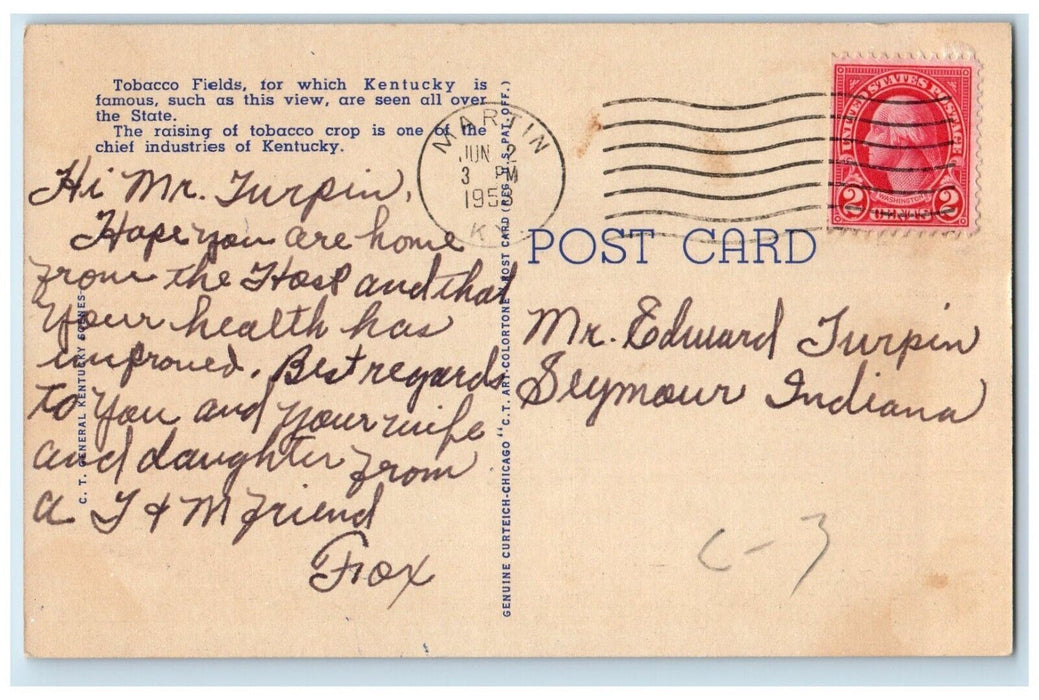 Tobacco Fields, for which Kentucky is
famous, such as this view, are seen all over
the State.
The raising of tobacco crop is one of the
chief industries of Kentucky.
MARTIN
JUN 2
3 PM
195
K
UNITED STATES POSTAGE
WASHINGTON
2 CENTS 2
Hi Mr. Turpin,
Hope you are home
from the Hosp and that
your health has
improved. Best regards
to you and your wife
and daughter from
a T & M friend
Fox
C. T. GENERAL KENTUCKY SCENES
GENUINE CURTEICH-CHICAGO "C.T. ART-COLORTONE" POST CARD (REG. U.S. PAT. OFF.)
POST CARD
Mr. Edward Turpin
Seymour Indiana
C-3